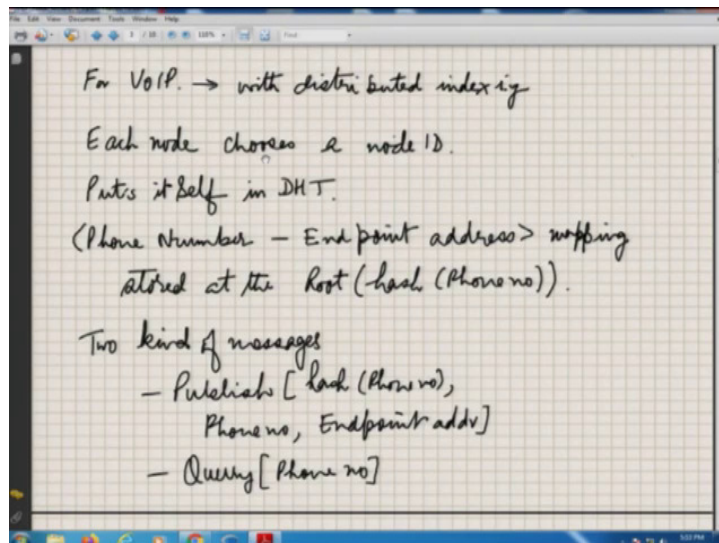 File Edit View Document Tools Window Help
3 / 18 118% Find
For VOIP. → with distributed indexig
Each node chooses a node ID.
Puts itself in DHT.
(Phone Number - Endpoint address> mapping
stored at the Root (hash (Phone no)).
Two kind of messages
- Publish [hash (Phone no),
Phone no, Endpoint addr]
- Query [Phone no]
5:03 PM